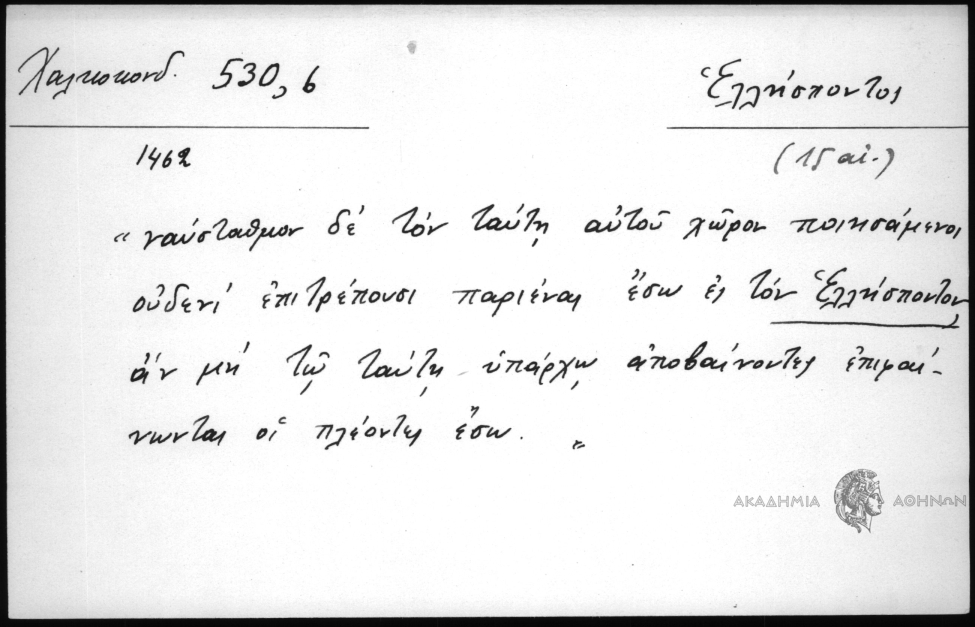 Χαλκοκονδ. 530,6
Ἑλλήσποντος
1462
(15 αἰ.)
“ναύσταθμον δὲ τὸν ταύτῃ αὐτοῦ χῶρον ποιησάμενοι
οὐδενὶ ἐπιτρέπουσι παριέναι ἔσω ἐς τὸν Ἑλλήσποντον,
ἀν μὴ τῷ ταύτῃ ὑπάρχῳ ἀποβαίνοντες ἐπιφαί-
νωνται οἱ πλέοντες ἔσω. „
ΑΚΑΔΗΜΙΑ ΑΘΗΝΩΝ